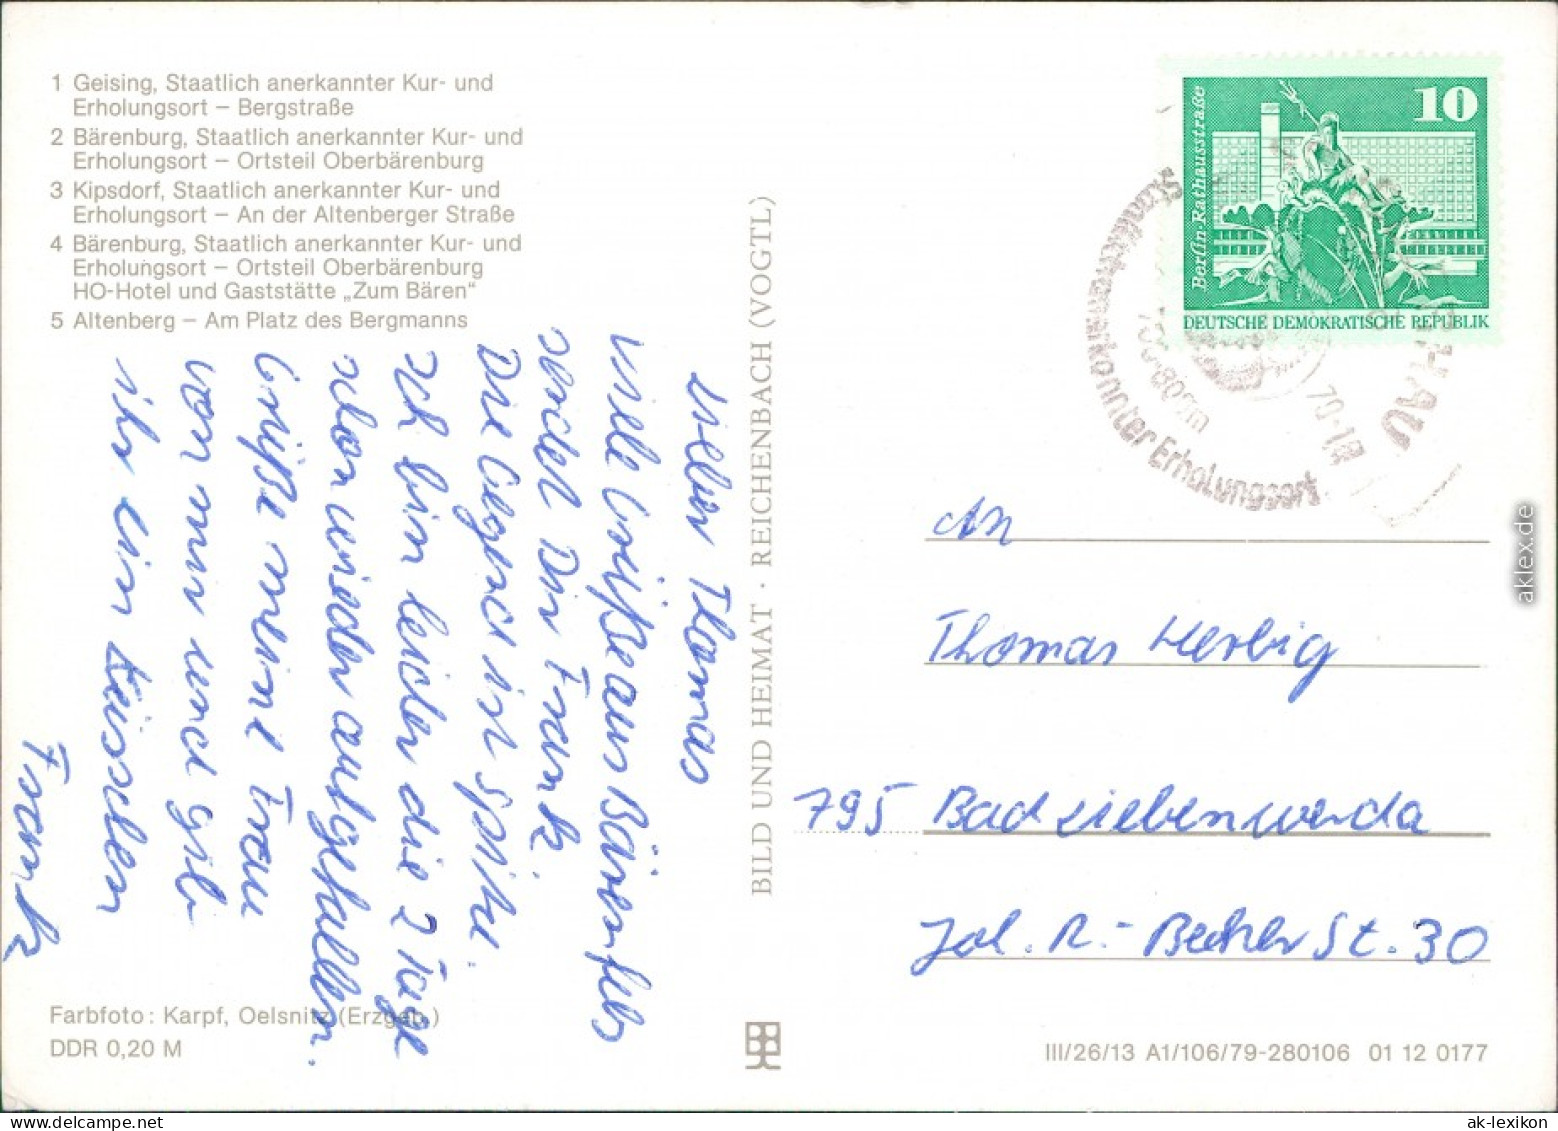 1 Geising, Staatlich anerkannter Kur- und
Erholungsort – Bergstraße
2 Bärenburg, Staatlich anerkannter Kur- und
Erholungsort – Ortsteil Oberbärenburg
3 Kipsdorf, Staatlich anerkannter Kur- und
Erholungsort – An der Altenberger Straße
4 Bärenburg, Staatlich anerkannter Kur- und
Erholungsort – Ortsteil Oberbärenburg
HO-Hotel und Gaststätte „Zum Bären“
5 Altenberg – Am Platz des Bergmanns
Lieber Thomas
Viele Grüße aus Bärenfels
sendet Dir Frank.
Die Gegend ist Spitze.
Ich bin leider die 2 Tage
schon wieder aufgefallen.
Grüße meine Frau
von mir und gib
ihr ein Küsschen
Frank
Farbfoto: Karpf, Oelsnitz (Erzgeb.)
DDR 0,20 M
BILD UND HEIMAT · REICHENBACH (VOGTL)
10
Berlin·Rathausstraße
DEUTSCHE DEMOKRATISCHE REPUBLIK
Staatlich anerkannter Erholungsort
An
Thomas Herbig
795 Bad Liebenwerda
Joh. R.- Becher St. 30
III/26/13 A1/106/79-280106 01 12 0177
aklex.de
ak-lexikon